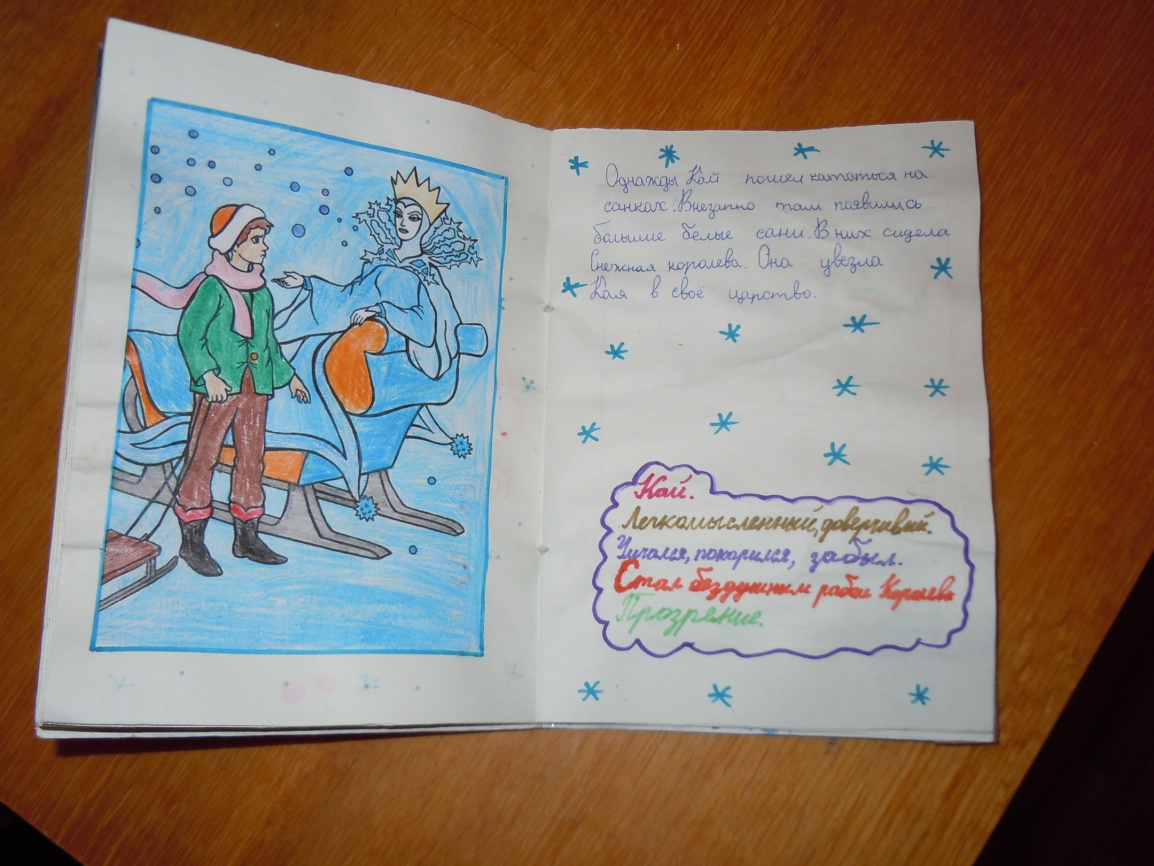 Однажды Кай пошел кататься на
санках. Внезапно там появились
большие белые сани. В них сидела
Снежная королева. Она увезла
Кая в своё царство.
Кай.
Легкомысленный, доверчивый.
Умчался, покорился, забыл.
Стал бездушным рабом Королевы
Прозрение.